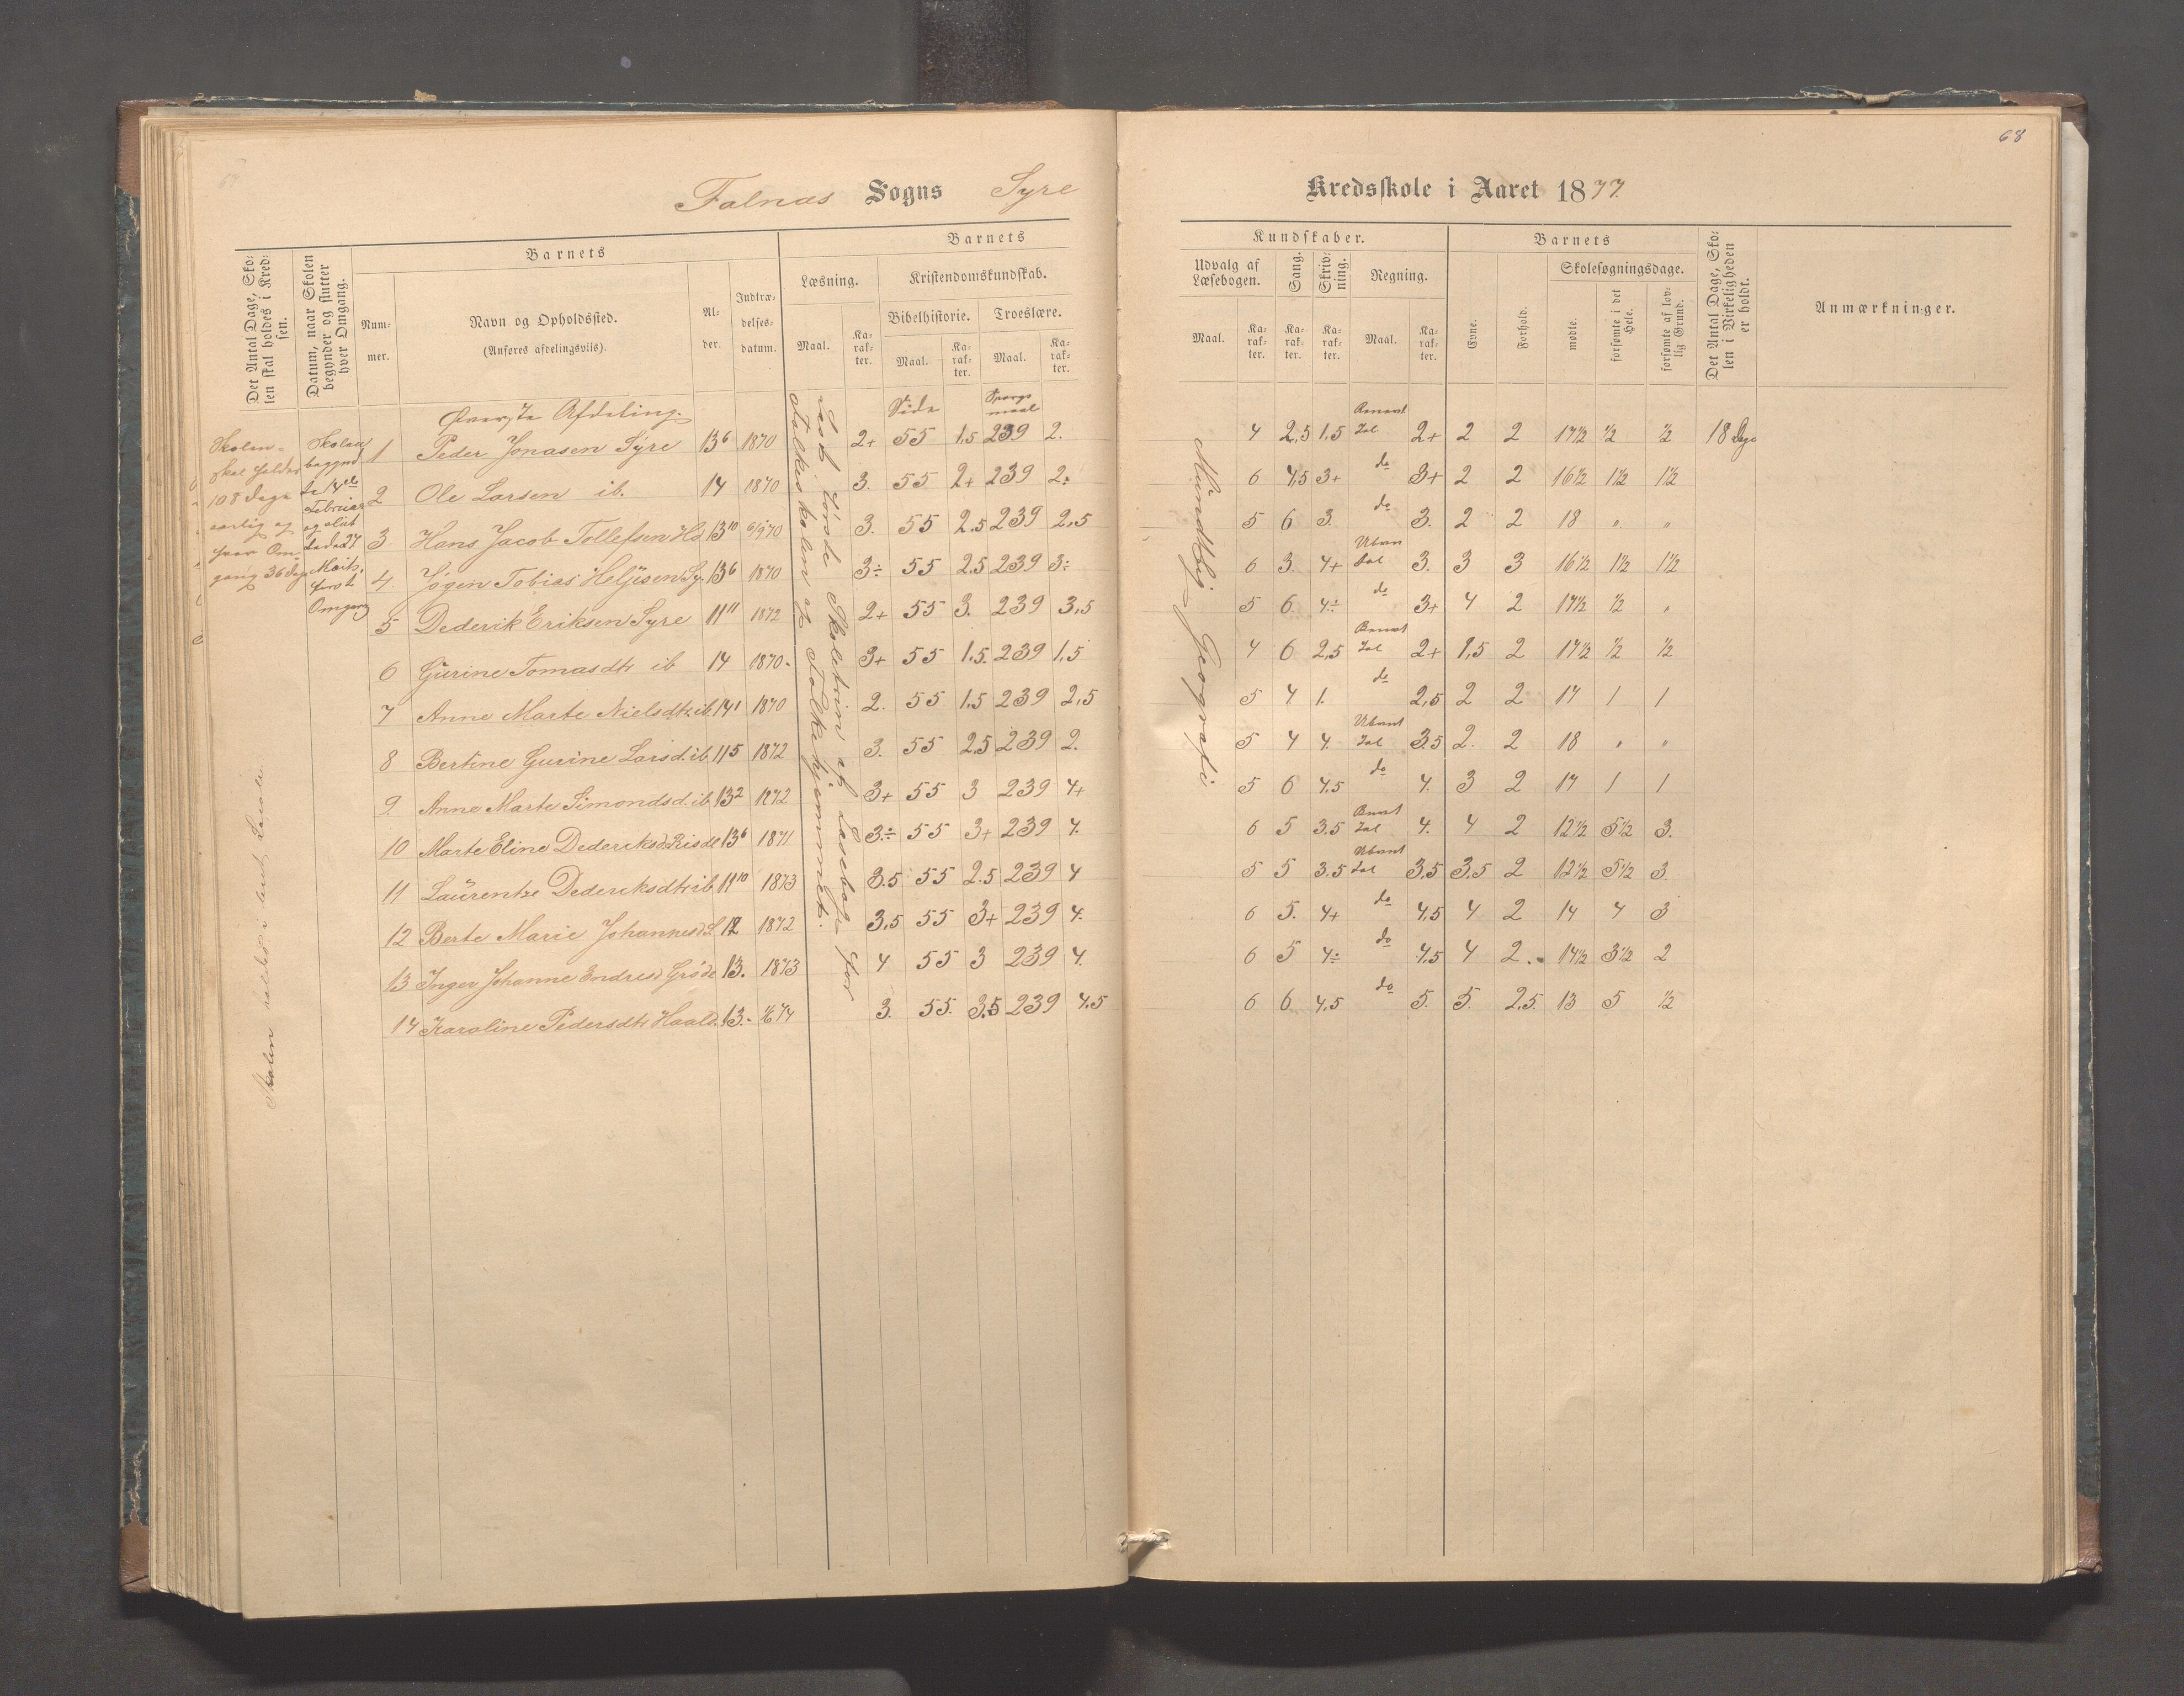 68
Falnæs Sogns Syre
Kredsskole i Aaret 1877.
Det Antal Dage, Skolen skal holdes i Kredsen.
Datum, naar Skolen begynder og slutter hver Omgang.
Barnets
Nummer.
Navn og Opholdssted.
(Anføres afdelingsviis).
Alder.
Indtrædelsesdatum.
Barnets
Læsning.
Maal.
Karakter.
Kristendomskundskab.
Bibelhistorie.
Maal.
Karakter.
Troeslære.
Maal.
Karakter.
Kundskaber.
Udvalg af Læsebogen.
Maal.
Karakter.
Sang.
Karakter.
Skrivning.
Karakter.
Regning.
Maal.
Karakter.
Barnets
Evne.
Forhold.
Skolesøgningsdage.
mødte.
forsømte i det Hele.
forsømte af lovlig Grund.
Det Antal Dage, Skolen i Virkeligheden er holdt.
Anmærkninger.
Skolen
skal holdes
108 Dage
aarlig og
hver Om-
gang 36 Dage
Skolen
begynd
te 14de
Februar
og slut
tede 27
Marts,
første
Omgang
Skolen holdes i leiet Locale.
Øverste Afdeling.
Side
Spørgs
maal
Læseb. første Skoletrin af Læsebog for
Folkeskolen og Folkehjemmet.
Mundtlig Geografi
1 Peder Jonasen Syre 13 6 1870 2+ 55 1.5 239 2. 4 2,5 1,5 Benævnt Tal 2+ 2 2 17½ ½ ½ 18 Dage
2 Ole Larsen ib. 14 1870 3. 55 2+ 239 2÷ 6 4,5 3+ do 3+ 2 2 16½ 1½ 1½
3 Hans Jacob Tollefsen 13 10 6/9 70 3. 55 2.5 239 2,5 5 6 3. do 3. 2 2 18 " "
4 Jøgen Tobias Heljesen Sy. 13 6 1870 3÷ 55 2.5 239 3÷ 6 3. 4+ Ubenævn Tal 3. 3 3 16½ 1½ 1½
5 Dederik Eriksen Syre 11 11 1872 2+ 55 3. 239 3,5 5 6. 4÷ do 3+ 4 2 17½ ½ "
6 Gurine Tomasdtr ib 14 1870. 3+ 55 1.5. 239 1,5 4 6 2,5 Benævnt Tal 2+ 1,5 2 17½ ½ ½
7 Anne Marte Nielsdtr. ib. 14 1 1870 2. 55 1.5 239 2,5 5 4 1. do 2,5 2 2 17 1 1
8 Bertine Gurine Larsd. ib 11 5 1872 3. 55 2.5 239 2. 5 4 4. Ubenævnt Tal 3.5 2. 2 18 " "
9. Anne Marte Simondsd. ib 13 2 1872 3+ 55 3 239 4+ 5 6 4.5 do 4. 3 2 17 1 1
10 Marte Eline Dederiksd. Risdl 13 6 1871 3÷ 55 3+ 239 4. 6 5 3.5 Benævnt Tal 4. 4 2 12½ 5½ 3.
11 Laurentze Dederiksdtr ib 11 10 1873 3.5 55 2.5 239 4 5 5 3.5 Ubenævnt Tal 3,5 3.5 2 12½ 5½ 3.
12 Berte Marie Johannesd. S. 12 1872 3,5 55 3+ 239 4. 6 5. 4+ do 4,5 4 2 14 4 3
13 Inger Johanne Endresd Grøde 13. 1873 4 55 3 239 4. 6 5 4÷ do 4,5 4 2. 14½ 3½ 2
14 Karoline Pedersdtr Haald. 13. 74 3. 55. 3.5 239 4.5 6 6. 4.5 do 5. 5. 2.5. 13 5 ½